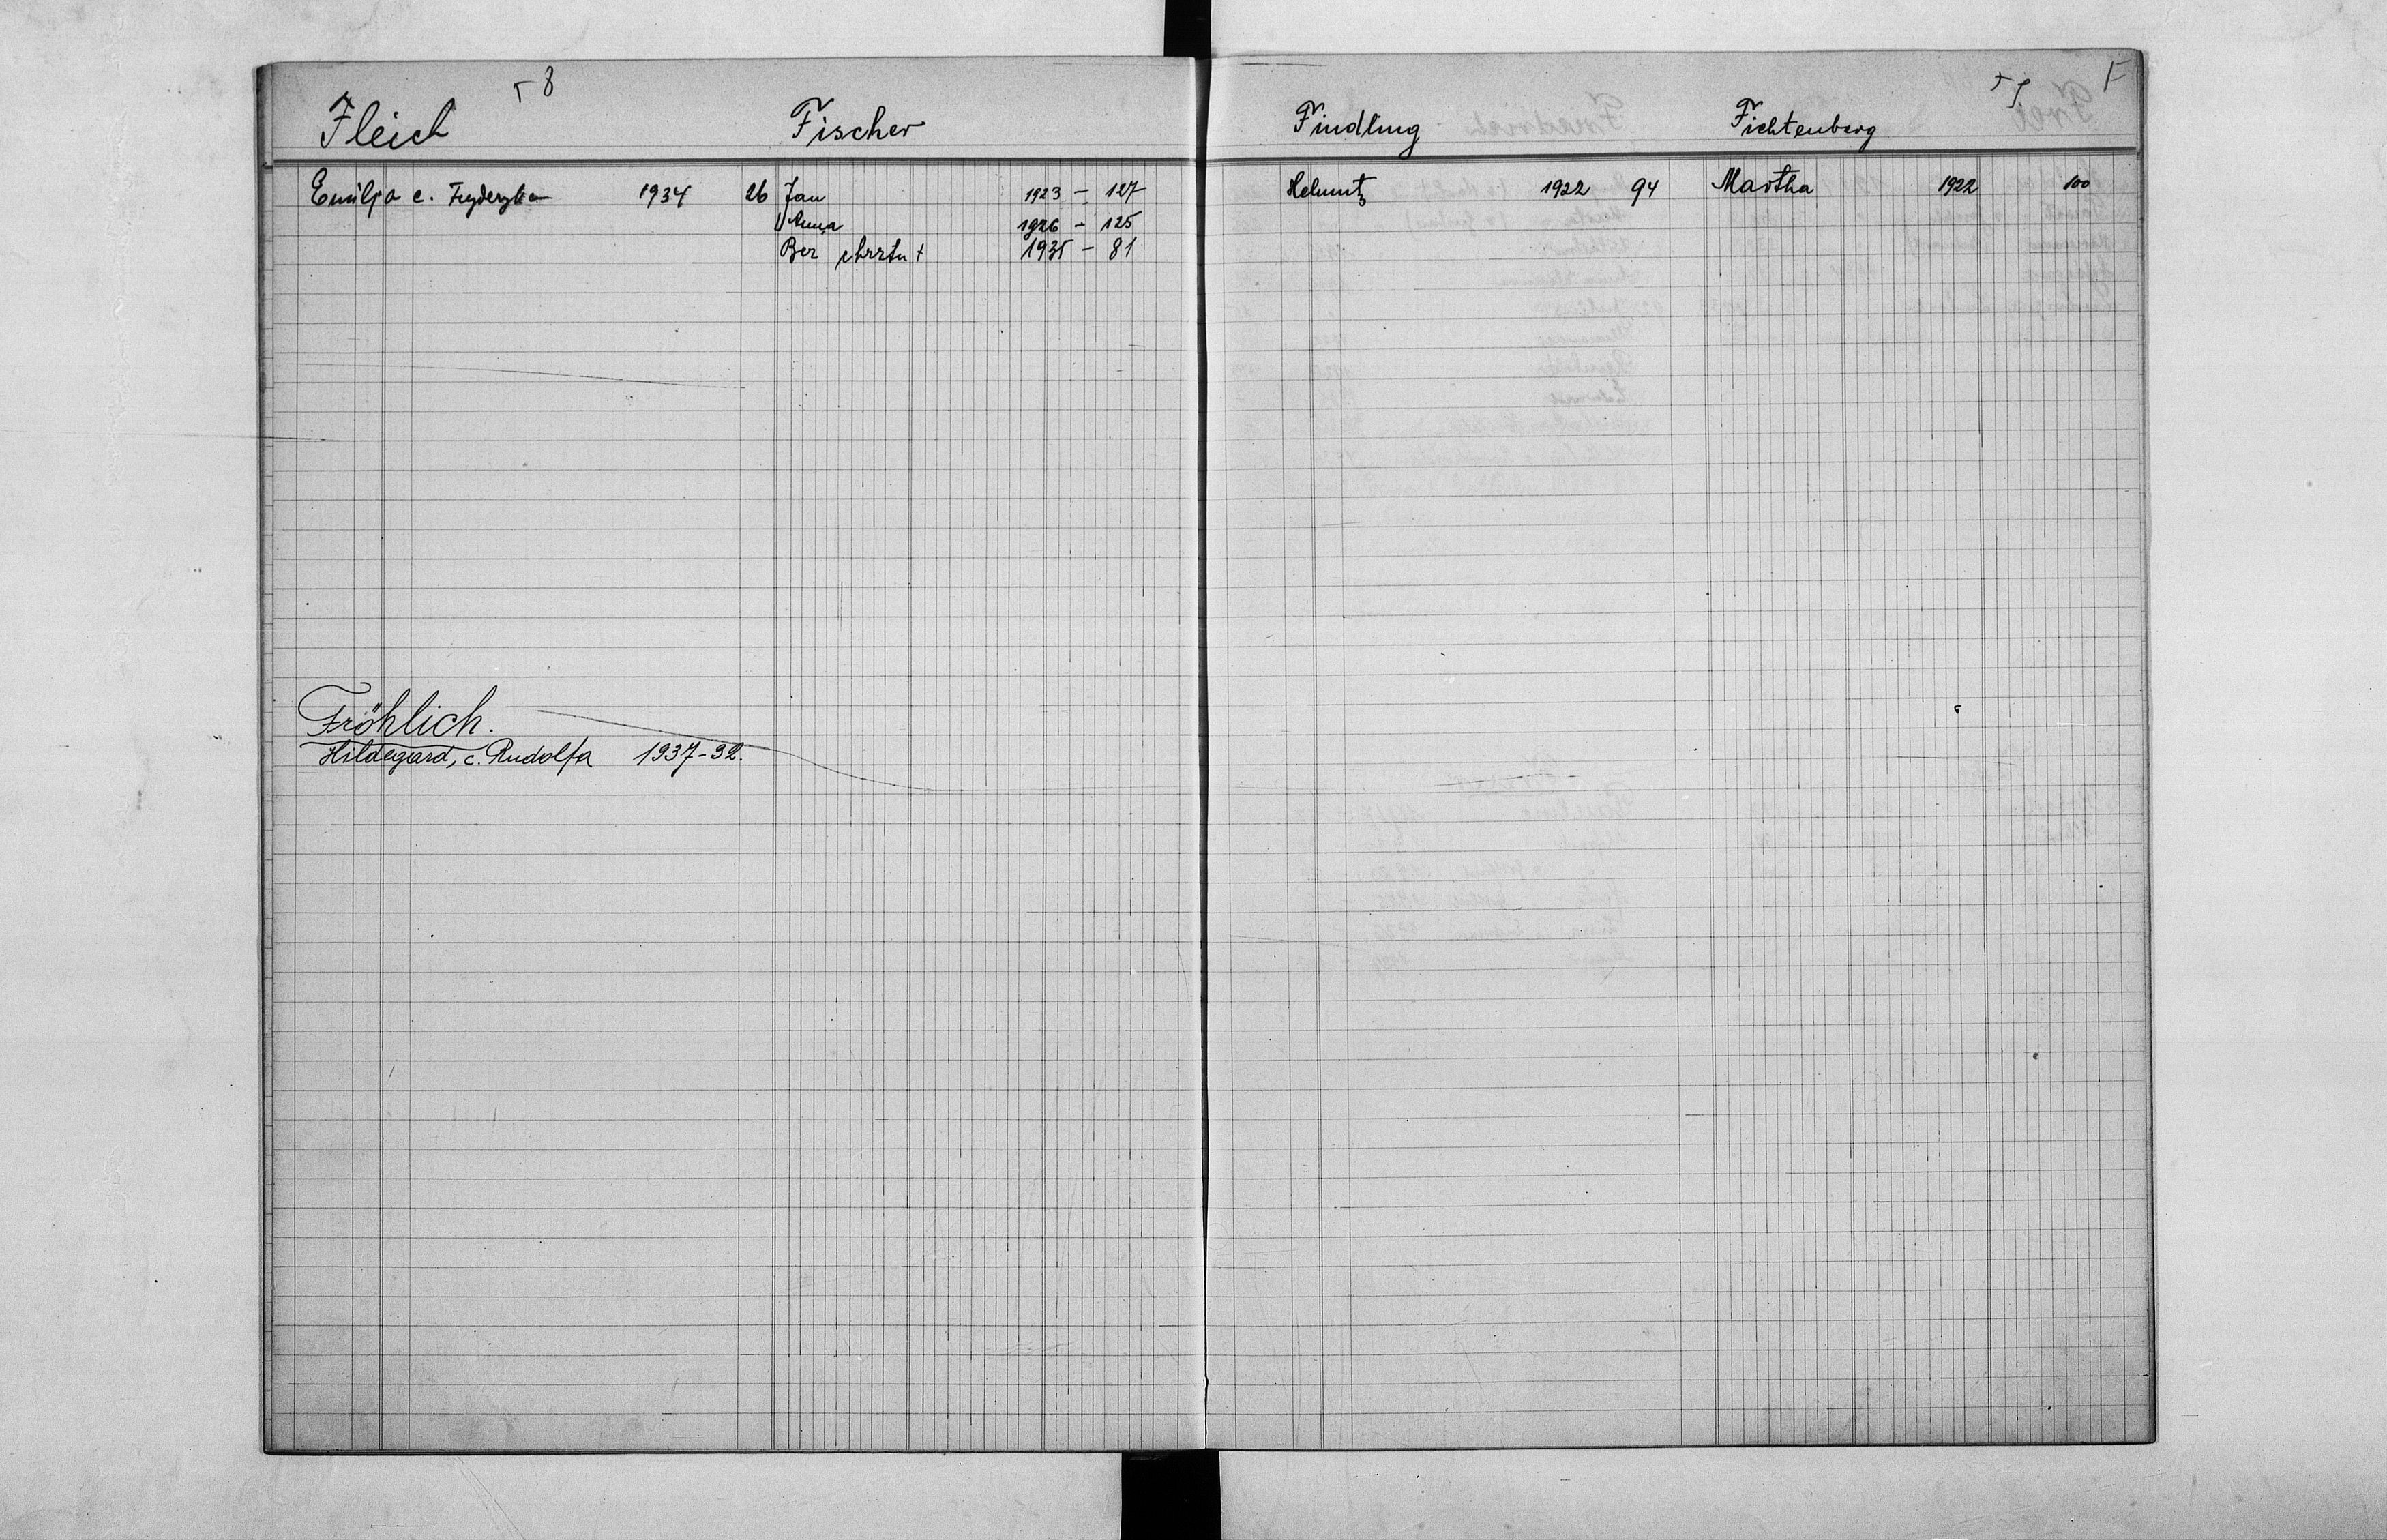 8
Fleich
Emilja c. Fryderyka 1934 26
Fröhlich.
Hildegard, c. Rudolfa 1937-32.
Fischer
Jan 1923 - 127
Anna 1926 - 125
Bez chrztu † 1935 - 81
F
Findling
Helmut 1922 94
Fichtenberg
Martha 1922 100